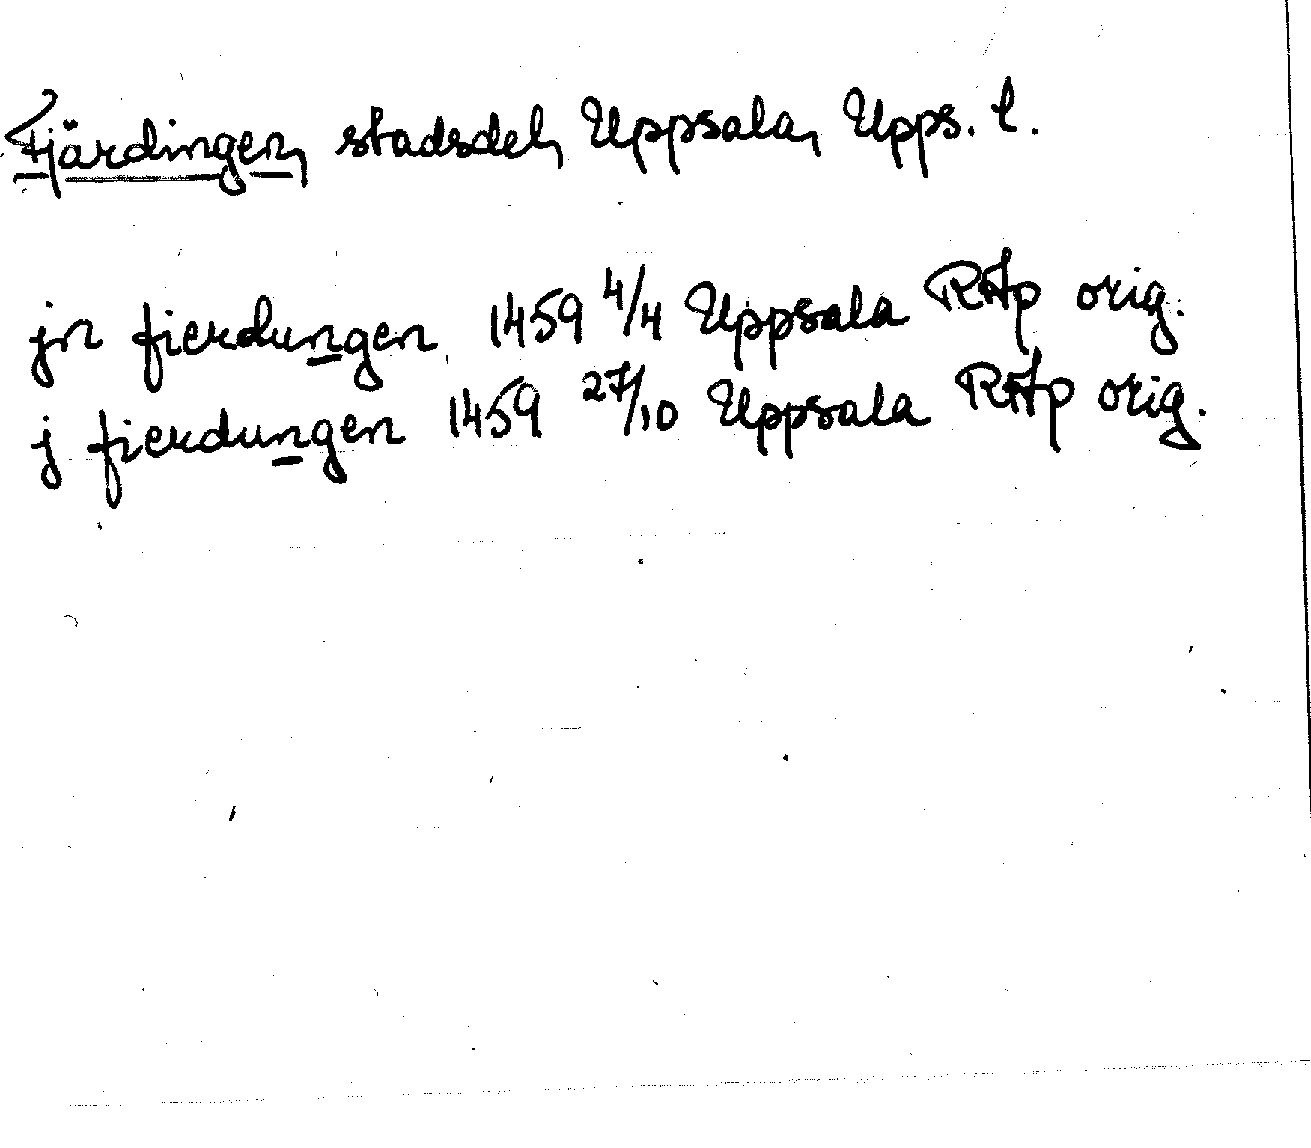 Fjärdingen, stadsdel, Uppsala, Upps. l.
jn fierdungen 1459 4/4 Uppsala RAp orig.
j fierdungen 1459 27/10 Uppsala RAp orig.